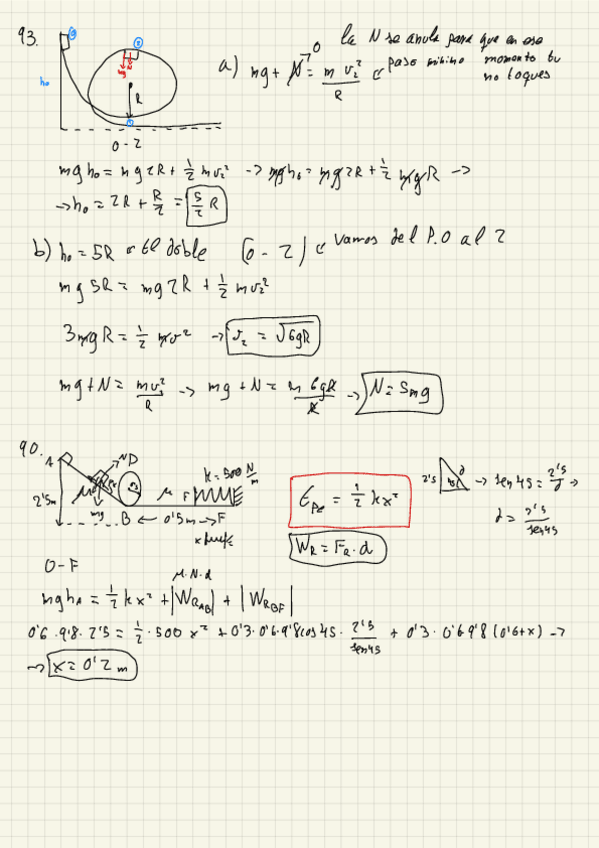 93.
h₀
R
0-2
la N se anula para que en ese
paso mínimo momento tu
no toques
a) mg + N = m v₂²/R
0
mgh₀ = mg2R + 1/2 mv₂² -> mgh₀ = mg2R + 1/2 mgR ->
-> h₀ = 2R + R/2 = 5/2 R
b) h₀ = 5R El doble (0-2) Vamos del P.0 al 2
mg5R = mg2R + 1/2 mv₂²
3mgR = 1/2 mv² -> v₂ = √6gR
mg + N = mv₂²/R -> mg + N = m 6gR/R -> N = 5mg
90.
A
N
2'5m
mg
B <- 0'5m -> F
μ
k = 500 N/m
Epe = 1/2 kx²
WR = FR · d
2'5
45
d
-> sen45 = 2'5/d ->
d = 2'5/sen45
0-F
μ·N·d
mghA = 1/2 kx² + |WRAB| + |WRBF|
0'6 · 9'8 · 2'5 = 1/2 · 500 x² + 0'3 · 0'6 · 9'8 cos 45 · 2'5/sen45 + 0'3 · 0'6 9'8 (0'6+x) ->
-> x = 0'2 m